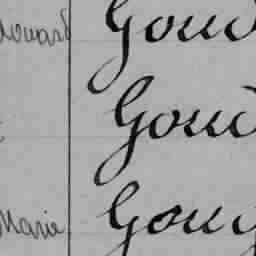 douard Goud
Goud
Marie Goug